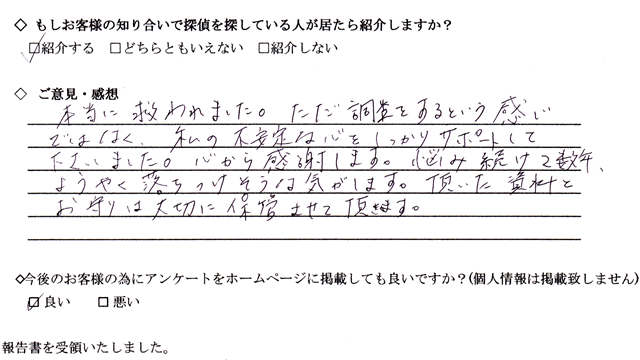 ◇ もしお客様の知り合いで探偵を探している人が居たら紹介しますか？
☑紹介する □どちらともいえない □紹介しない
◇ ご意見・感想
本当に救われました。ただ調査をするという感じ
ではなく、私の不安定な心をしっかりサポートして
下さいました。心から感謝します。悩み続けて数年、
ようやく落ちつけそうな気がします。頂いた資料と
お守りは大切に保管させて頂きます。
◇今後のお客様の為にアンケートをホームページに掲載しても良いですか？(個人情報は掲載致しません)
☑良い □悪い
報告書を受領いたしました。